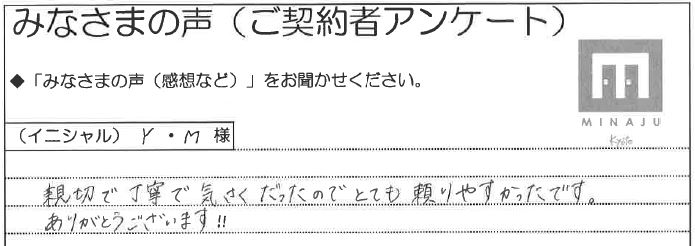 みなさまの声（ご契約者アンケート）
◆「みなさまの声（感想など）」をお聞かせください。
MINAJU
Kyoto
（イニシャル） Y・M 様
親切で丁寧で気さくだったのでとても頼りやすかったです。
ありがとうございます!!